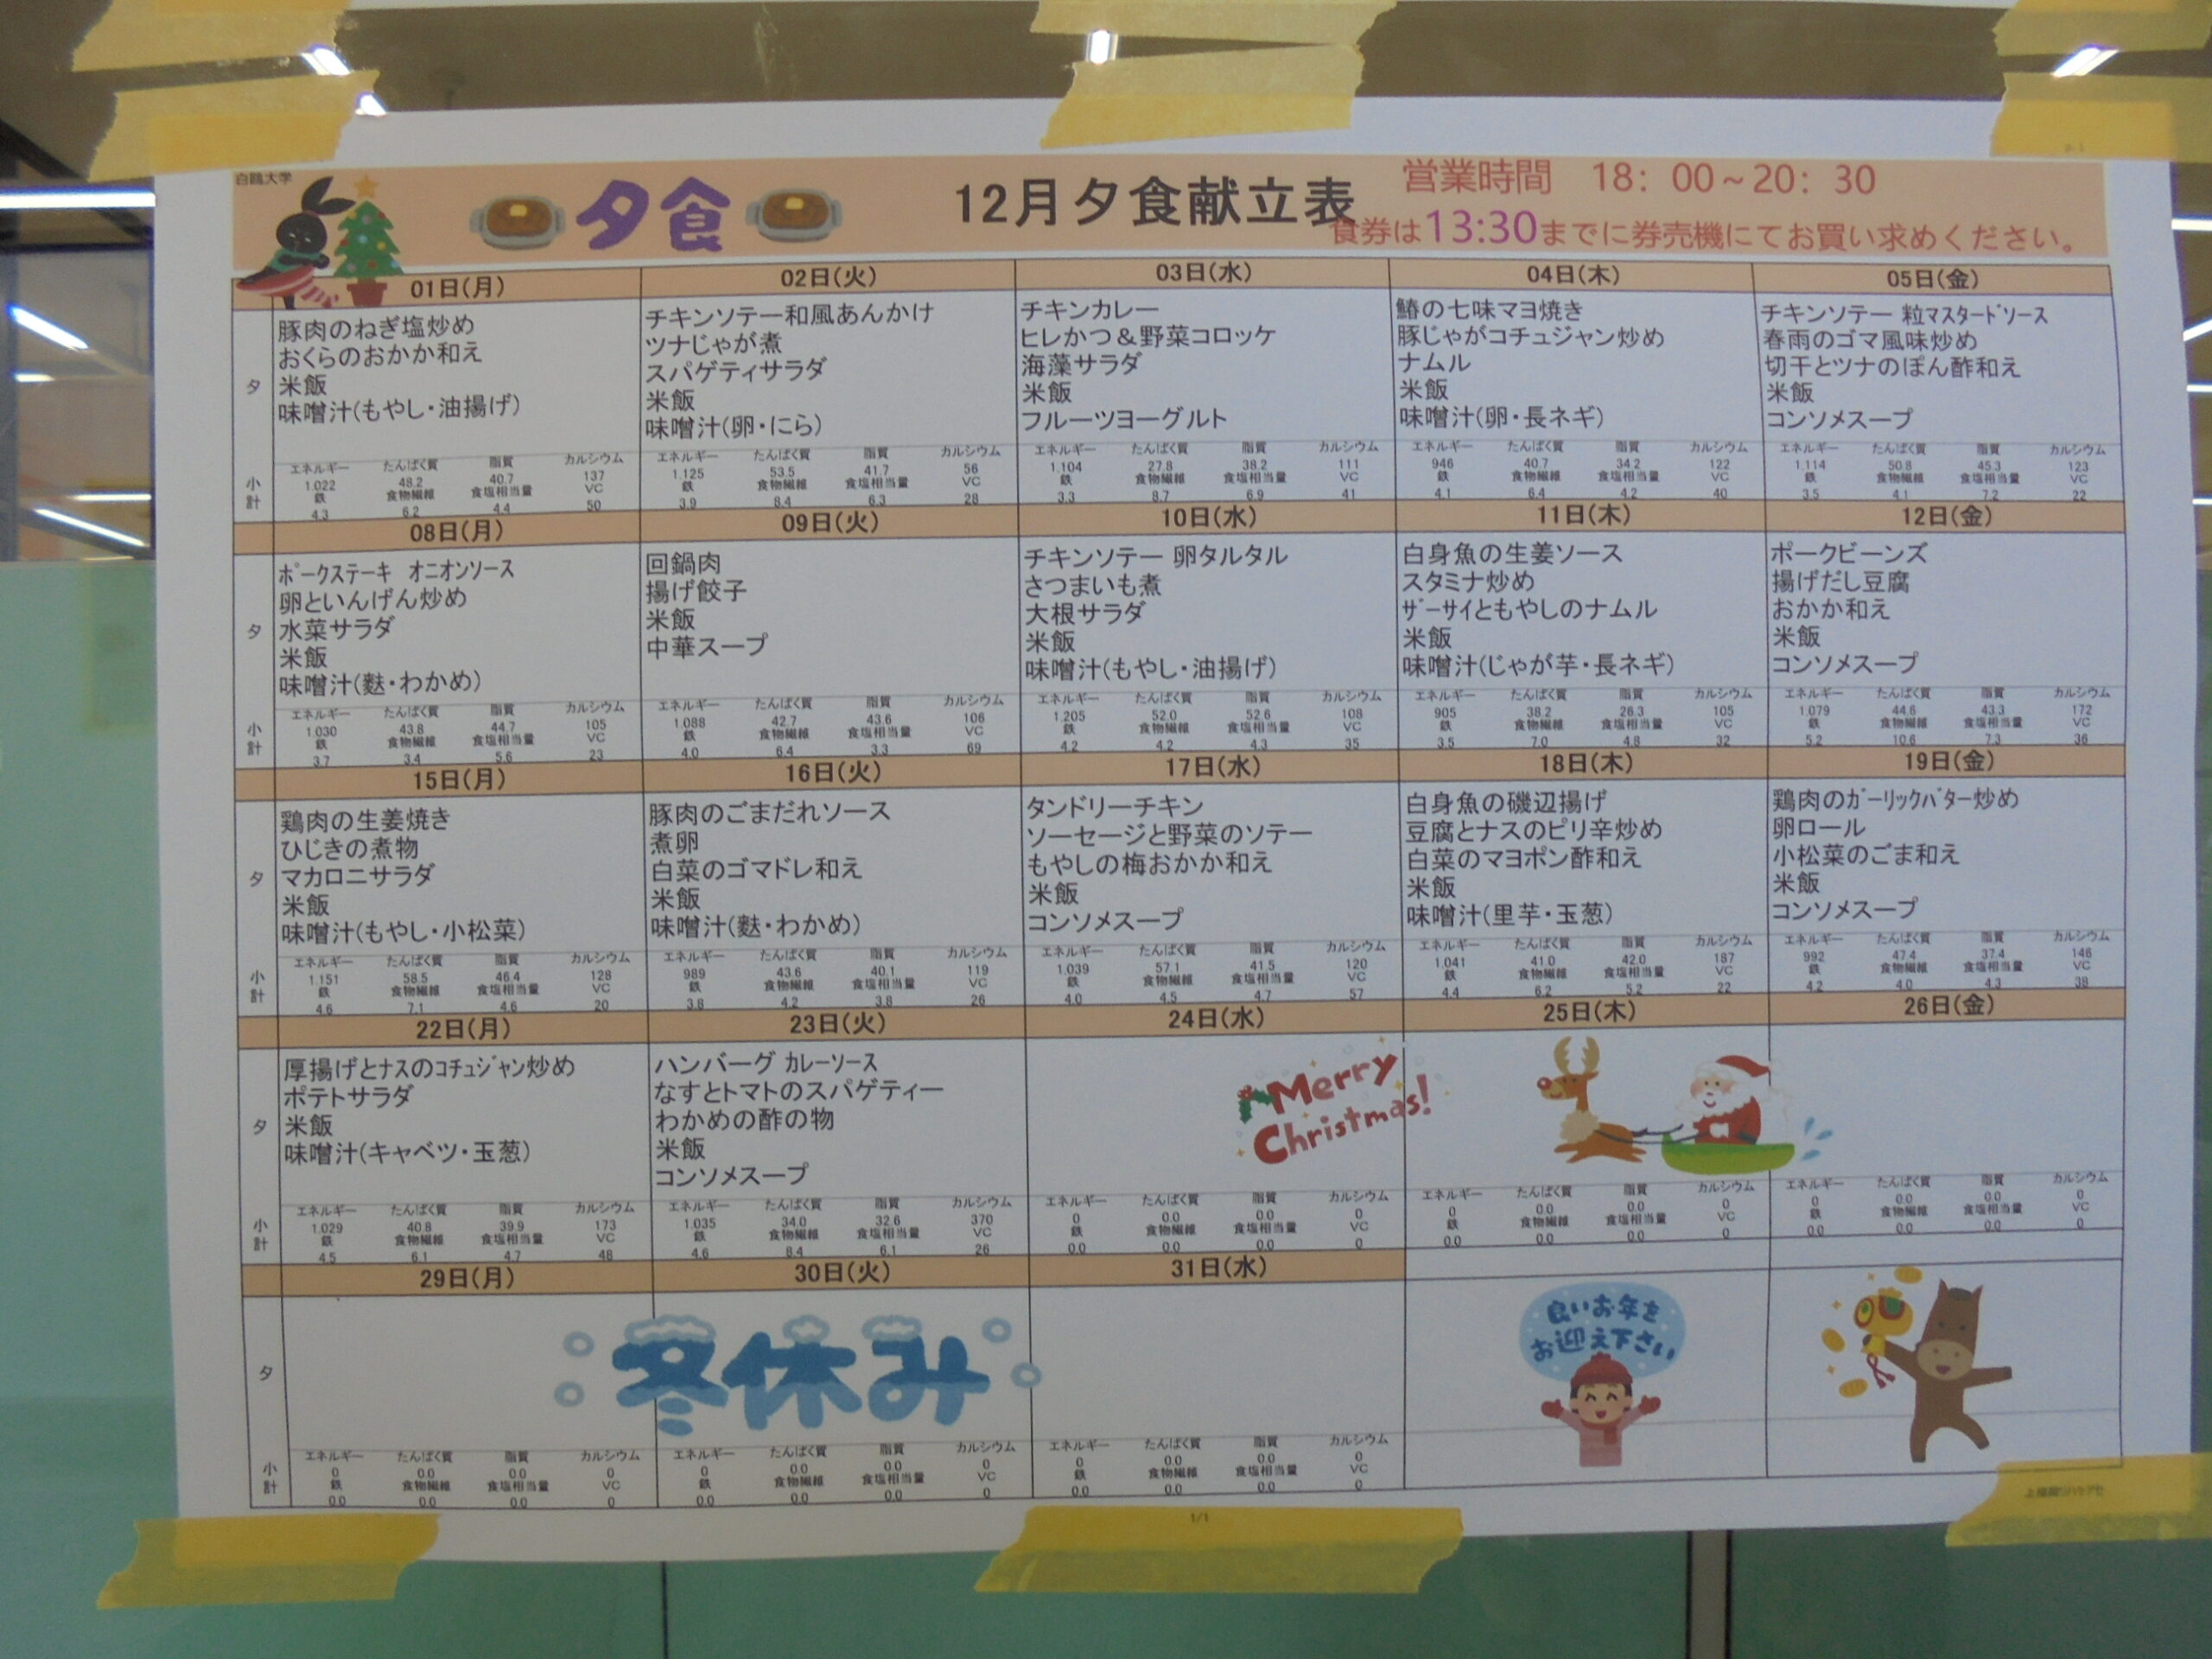 白鴎大学
夕食
12月夕食献立表
営業時間 18:00～20:30
食券は13:30までに券売機にてお買い求めください。
01日(月) 02日(火) 03日(水) 04日(木) 05日(金)
夕
豚肉のねぎ塩炒め
おくらのおかか和え
米飯
味噌汁(もやし・油揚げ)
チキンソテー和風あんかけ
ツナじゃが煮
スパゲティサラダ
米飯
味噌汁(卵・にら)
チキンカレー
ヒレかつ＆野菜コロッケ
海藻サラダ
米飯
フルーツヨーグルト
鰆の七味マヨ焼き
豚じゃがコチュジャン炒め
ナムル
米飯
味噌汁(卵・長ネギ)
チキンソテー 粒ﾏｽﾀｰﾄﾞｿｰｽ
春雨のゴマ風味炒め
切干とツナのぽん酢和え
米飯
コンソメスープ
小計
エネルギー たんぱく質 脂質 カルシウム
1,022 48.2 40.7 137
鉄 食物繊維 食塩相当量 VC
4.3 6.2 4.4 50
エネルギー たんぱく質 脂質 カルシウム
1,125 53.5 41.7 56
鉄 食物繊維 食塩相当量 VC
3.9 8.4 6.3 28
エネルギー たんぱく質 脂質 カルシウム
1,104 27.8 38.2 111
鉄 食物繊維 食塩相当量 VC
3.3 8.7 6.9 41
エネルギー たんぱく質 脂質 カルシウム
946 40.7 34.2 122
鉄 食物繊維 食塩相当量 VC
4.1 6.4 4.2 40
エネルギー たんぱく質 脂質 カルシウム
1,114 50.8 45.3 123
鉄 食物繊維 食塩相当量 VC
3.5 4.1 7.2 22
08日(月) 09日(火) 10日(水) 11日(木) 12日(金)
夕
ﾎﾟｰｸｽﾃｰｷ オニオンソース
卵といんげん炒め
水菜サラダ
米飯
味噌汁(麩・わかめ)
回鍋肉
揚げ餃子
米飯
中華スープ
チキンソテー 卵タルタル
さつまいも煮
大根サラダ
米飯
味噌汁(もやし・油揚げ)
白身魚の生姜ソース
スタミナ炒め
ｻﾞｰｻｲともやしのナムル
米飯
味噌汁(じゃが芋・長ネギ)
ポークビーンズ
揚げだし豆腐
おかか和え
米飯
コンソメスープ
小計
エネルギー たんぱく質 脂質 カルシウム
1,030 43.8 44.7 105
鉄 食物繊維 食塩相当量 VC
3.7 3.4 5.6 23
エネルギー たんぱく質 脂質 カルシウム
1,088 42.7 43.6 106
鉄 食物繊維 食塩相当量 VC
4.0 6.4 3.3 69
エネルギー たんぱく質 脂質 カルシウム
1,205 52.0 52.6 108
鉄 食物繊維 食塩相当量 VC
4.2 4.2 4.3 35
エネルギー たんぱく質 脂質 カルシウム
905 38.2 26.3 105
鉄 食物繊維 食塩相当量 VC
3.5 7.0 4.8 32
エネルギー たんぱく質 脂質 カルシウム
1,079 44.6 43.3 172
鉄 食物繊維 食塩相当量 VC
5.2 10.6 7.3 36
15日(月) 16日(火) 17日(水) 18日(木) 19日(金)
夕
鶏肉の生姜焼き
ひじきの煮物
マカロニサラダ
米飯
味噌汁(もやし・小松菜)
豚肉のごまだれソース
煮卵
白菜のゴマドレ和え
米飯
味噌汁(麩・わかめ)
タンドリーチキン
ソーセージと野菜のソテー
もやしの梅おかか和え
米飯
コンソメスープ
白身魚の磯辺揚げ
豆腐とナスのピリ辛炒め
白菜のマヨポン酢和え
米飯
味噌汁(里芋・玉葱)
鶏肉のｶﾞｰﾘｯｸﾊﾞﾀｰ炒め
卵ロール
小松菜のごま和え
米飯
コンソメスープ
小計
エネルギー たんぱく質 脂質 カルシウム
1,151 58.5 46.4 128
鉄 食物繊維 食塩相当量 VC
4.6 7.1 4.6 20
エネルギー たんぱく質 脂質 カルシウム
989 43.6 40.1 119
鉄 食物繊維 食塩相当量 VC
3.8 4.2 3.8 26
エネルギー たんぱく質 脂質 カルシウム
1,039 57.1 41.5 120
鉄 食物繊維 食塩相当量 VC
4.0 4.5 4.7 57
エネルギー たんぱく質 脂質 カルシウム
1,041 41.0 42.0 187
鉄 食物繊維 食塩相当量 VC
4.4 6.2 5.2 22
エネルギー たんぱく質 脂質 カルシウム
992 47.4 37.4 146
鉄 食物繊維 食塩相当量 VC
4.2 4.0 4.3 38
22日(月) 23日(火) 24日(水) 25日(木) 26日(金)
夕
厚揚げとﾅｽのｺﾁｭｼﾞｬﾝ炒め
ポテトサラダ
米飯
味噌汁(キャベツ・玉葱)
ハンバーグ ｶﾚｰｿｰｽ
なすとトマトのスパゲティー
わかめの酢の物
米飯
コンソメスープ
Merry
Christmas!
小計
エネルギー たんぱく質 脂質 カルシウム
1,029 40.8 39.9 173
鉄 食物繊維 食塩相当量 VC
4.5 6.1 4.7 48
エネルギー たんぱく質 脂質 カルシウム
1,035 34.0 32.6 370
鉄 食物繊維 食塩相当量 VC
4.6 8.4 6.1 26
エネルギー たんぱく質 脂質 カルシウム
0 0.0 0.0 0
鉄 食物繊維 食塩相当量 VC
0.0 0.0 0.0 0
エネルギー たんぱく質 脂質 カルシウム
0 0.0 0.0 0
鉄 食物繊維 食塩相当量 VC
0.0 0.0 0.0 0
エネルギー たんぱく質 脂質 カルシウム
0 0.0 0.0 0
鉄 食物繊維 食塩相当量 VC
0.0 0.0 0.0 0
29日(月) 30日(火) 31日(水)
夕
冬休み
良いお年を
お迎え下さい
小計
エネルギー たんぱく質 脂質 カルシウム
0 0.0 0.0 0
鉄 食物繊維 食塩相当量 VC
0.0 0.0 0.0 0
エネルギー たんぱく質 脂質 カルシウム
0 0.0 0.0 0
鉄 食物繊維 食塩相当量 VC
0.0 0.0 0.0 0
エネルギー たんぱく質 脂質 カルシウム
0 0.0 0.0 0
鉄 食物繊維 食塩相当量 VC
0.0 0.0 0.0 0
1/1